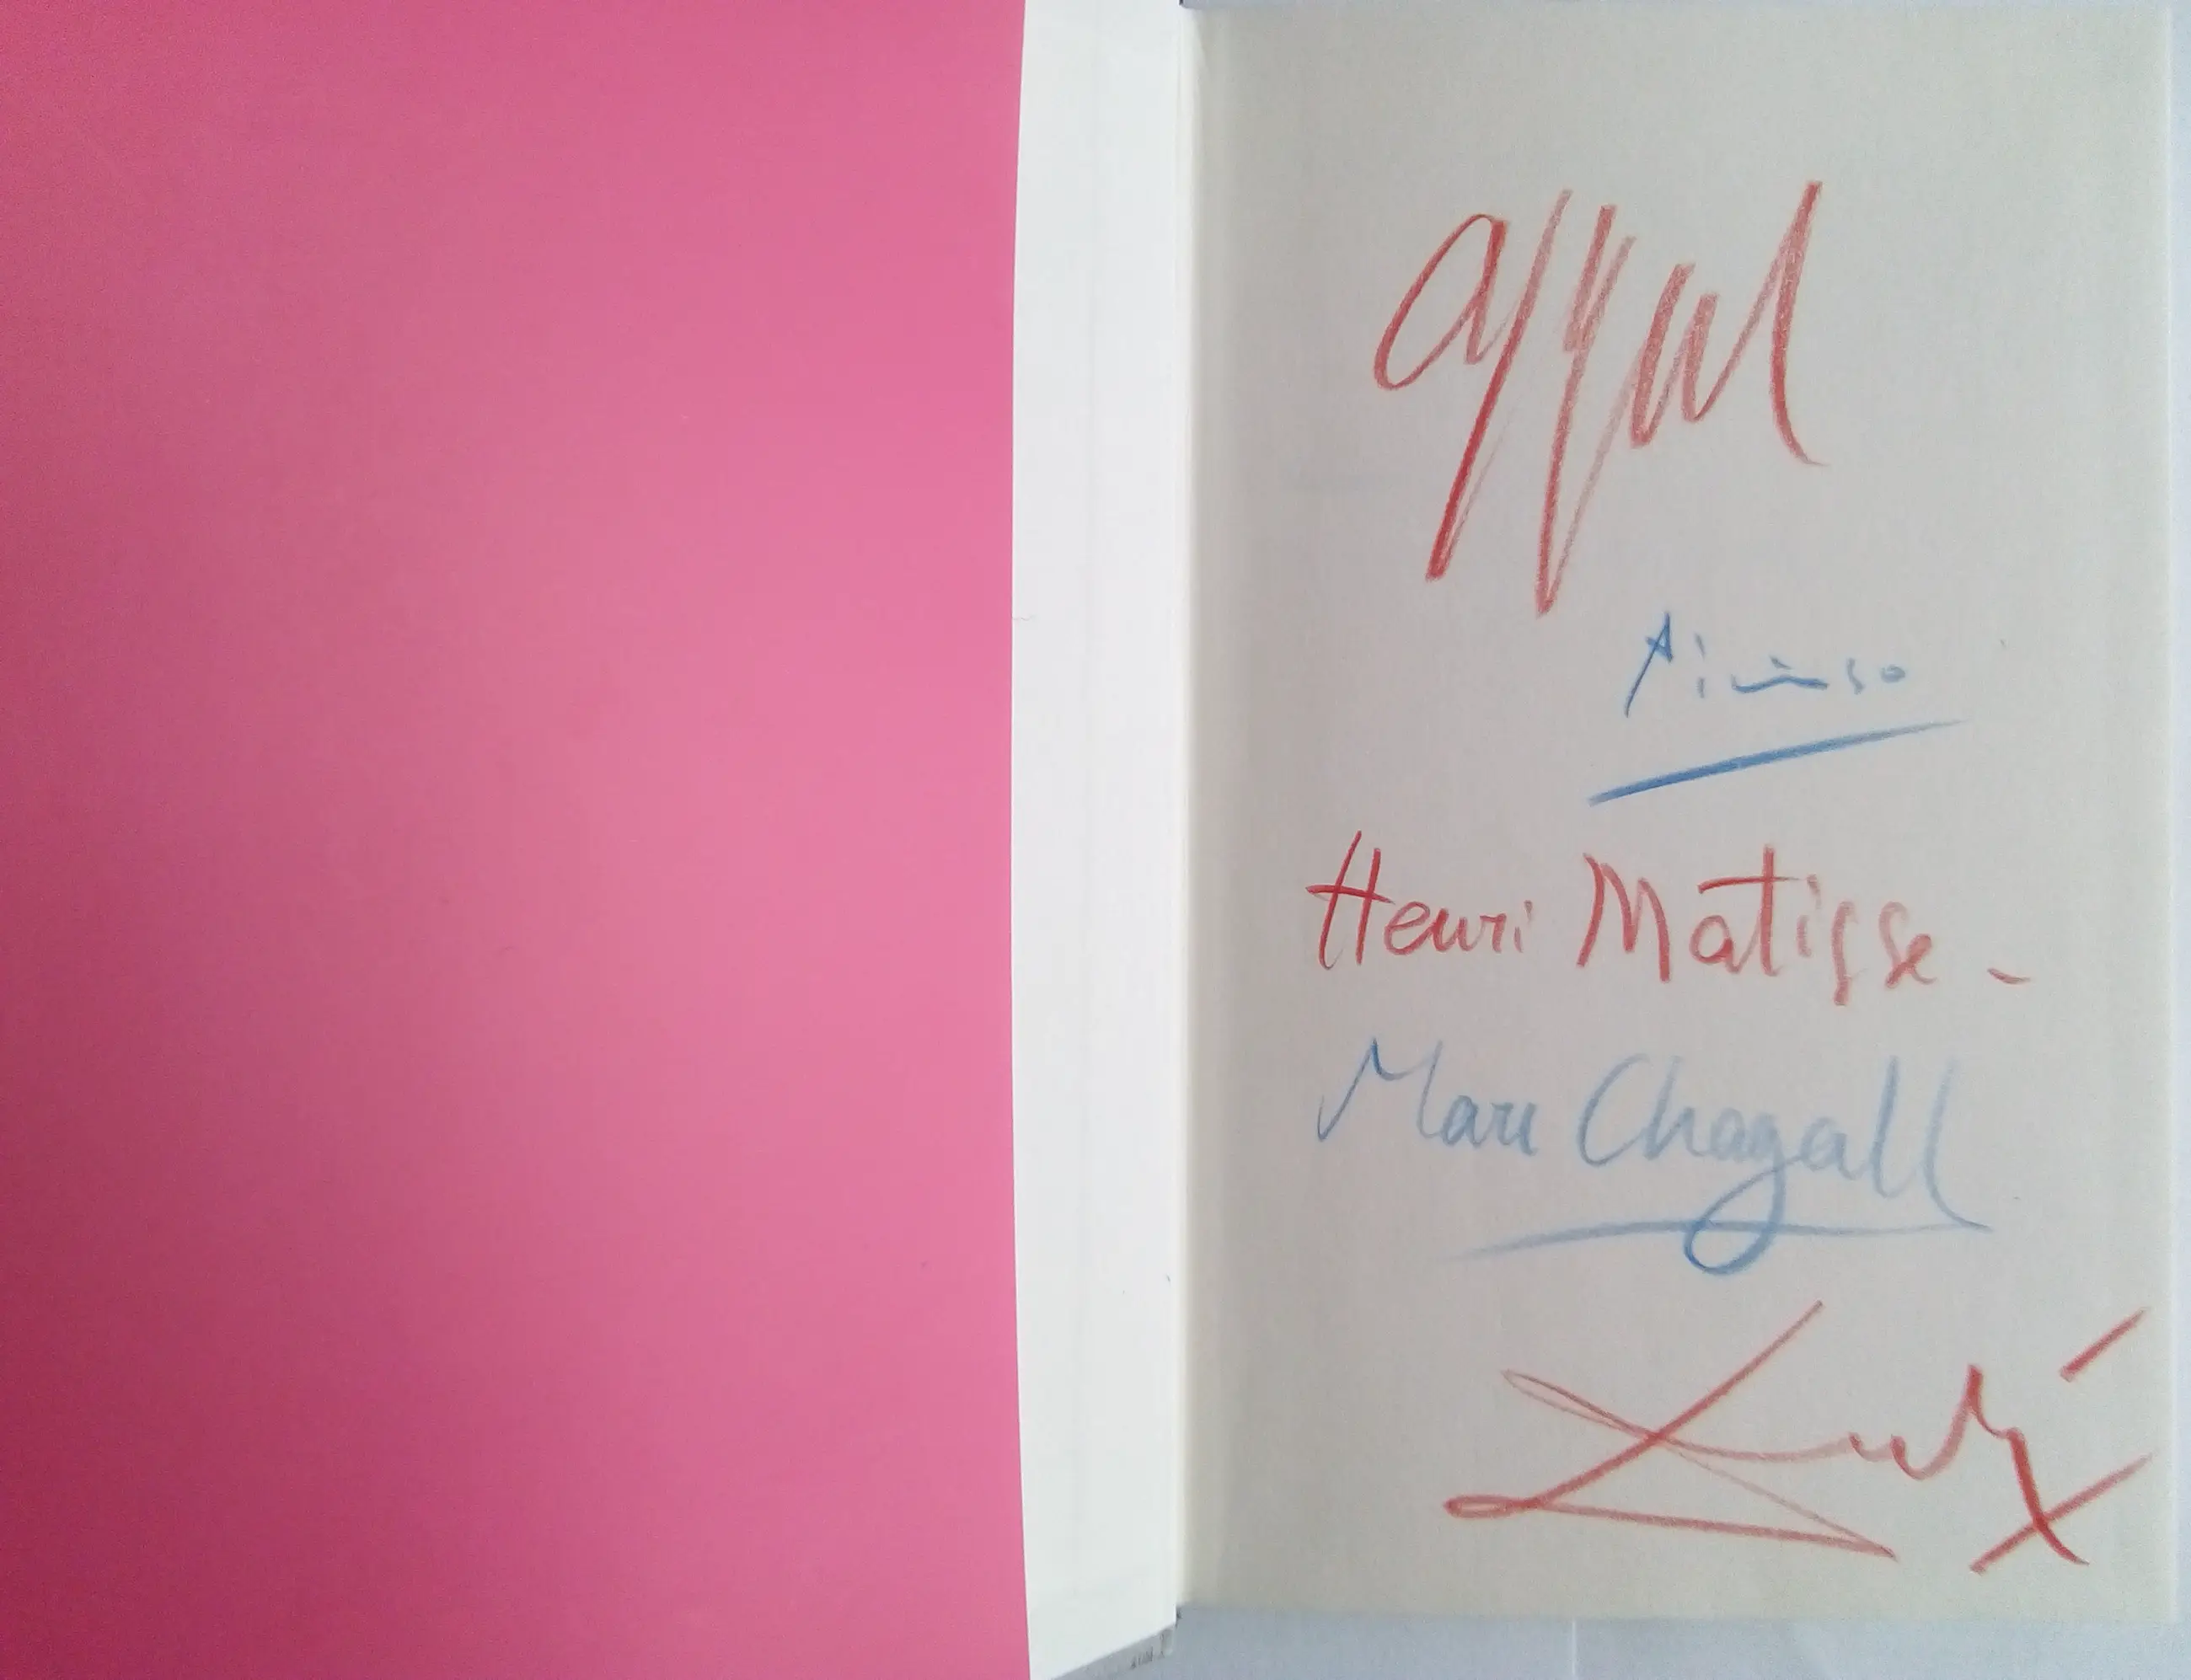 Picasso
Henri Matisse -
Marc Chagall
Dalí